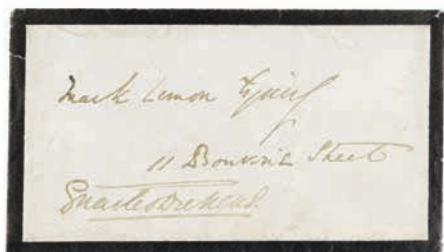 Mark Lemon Esquire
11 Bouverie Street
Charles Dickens